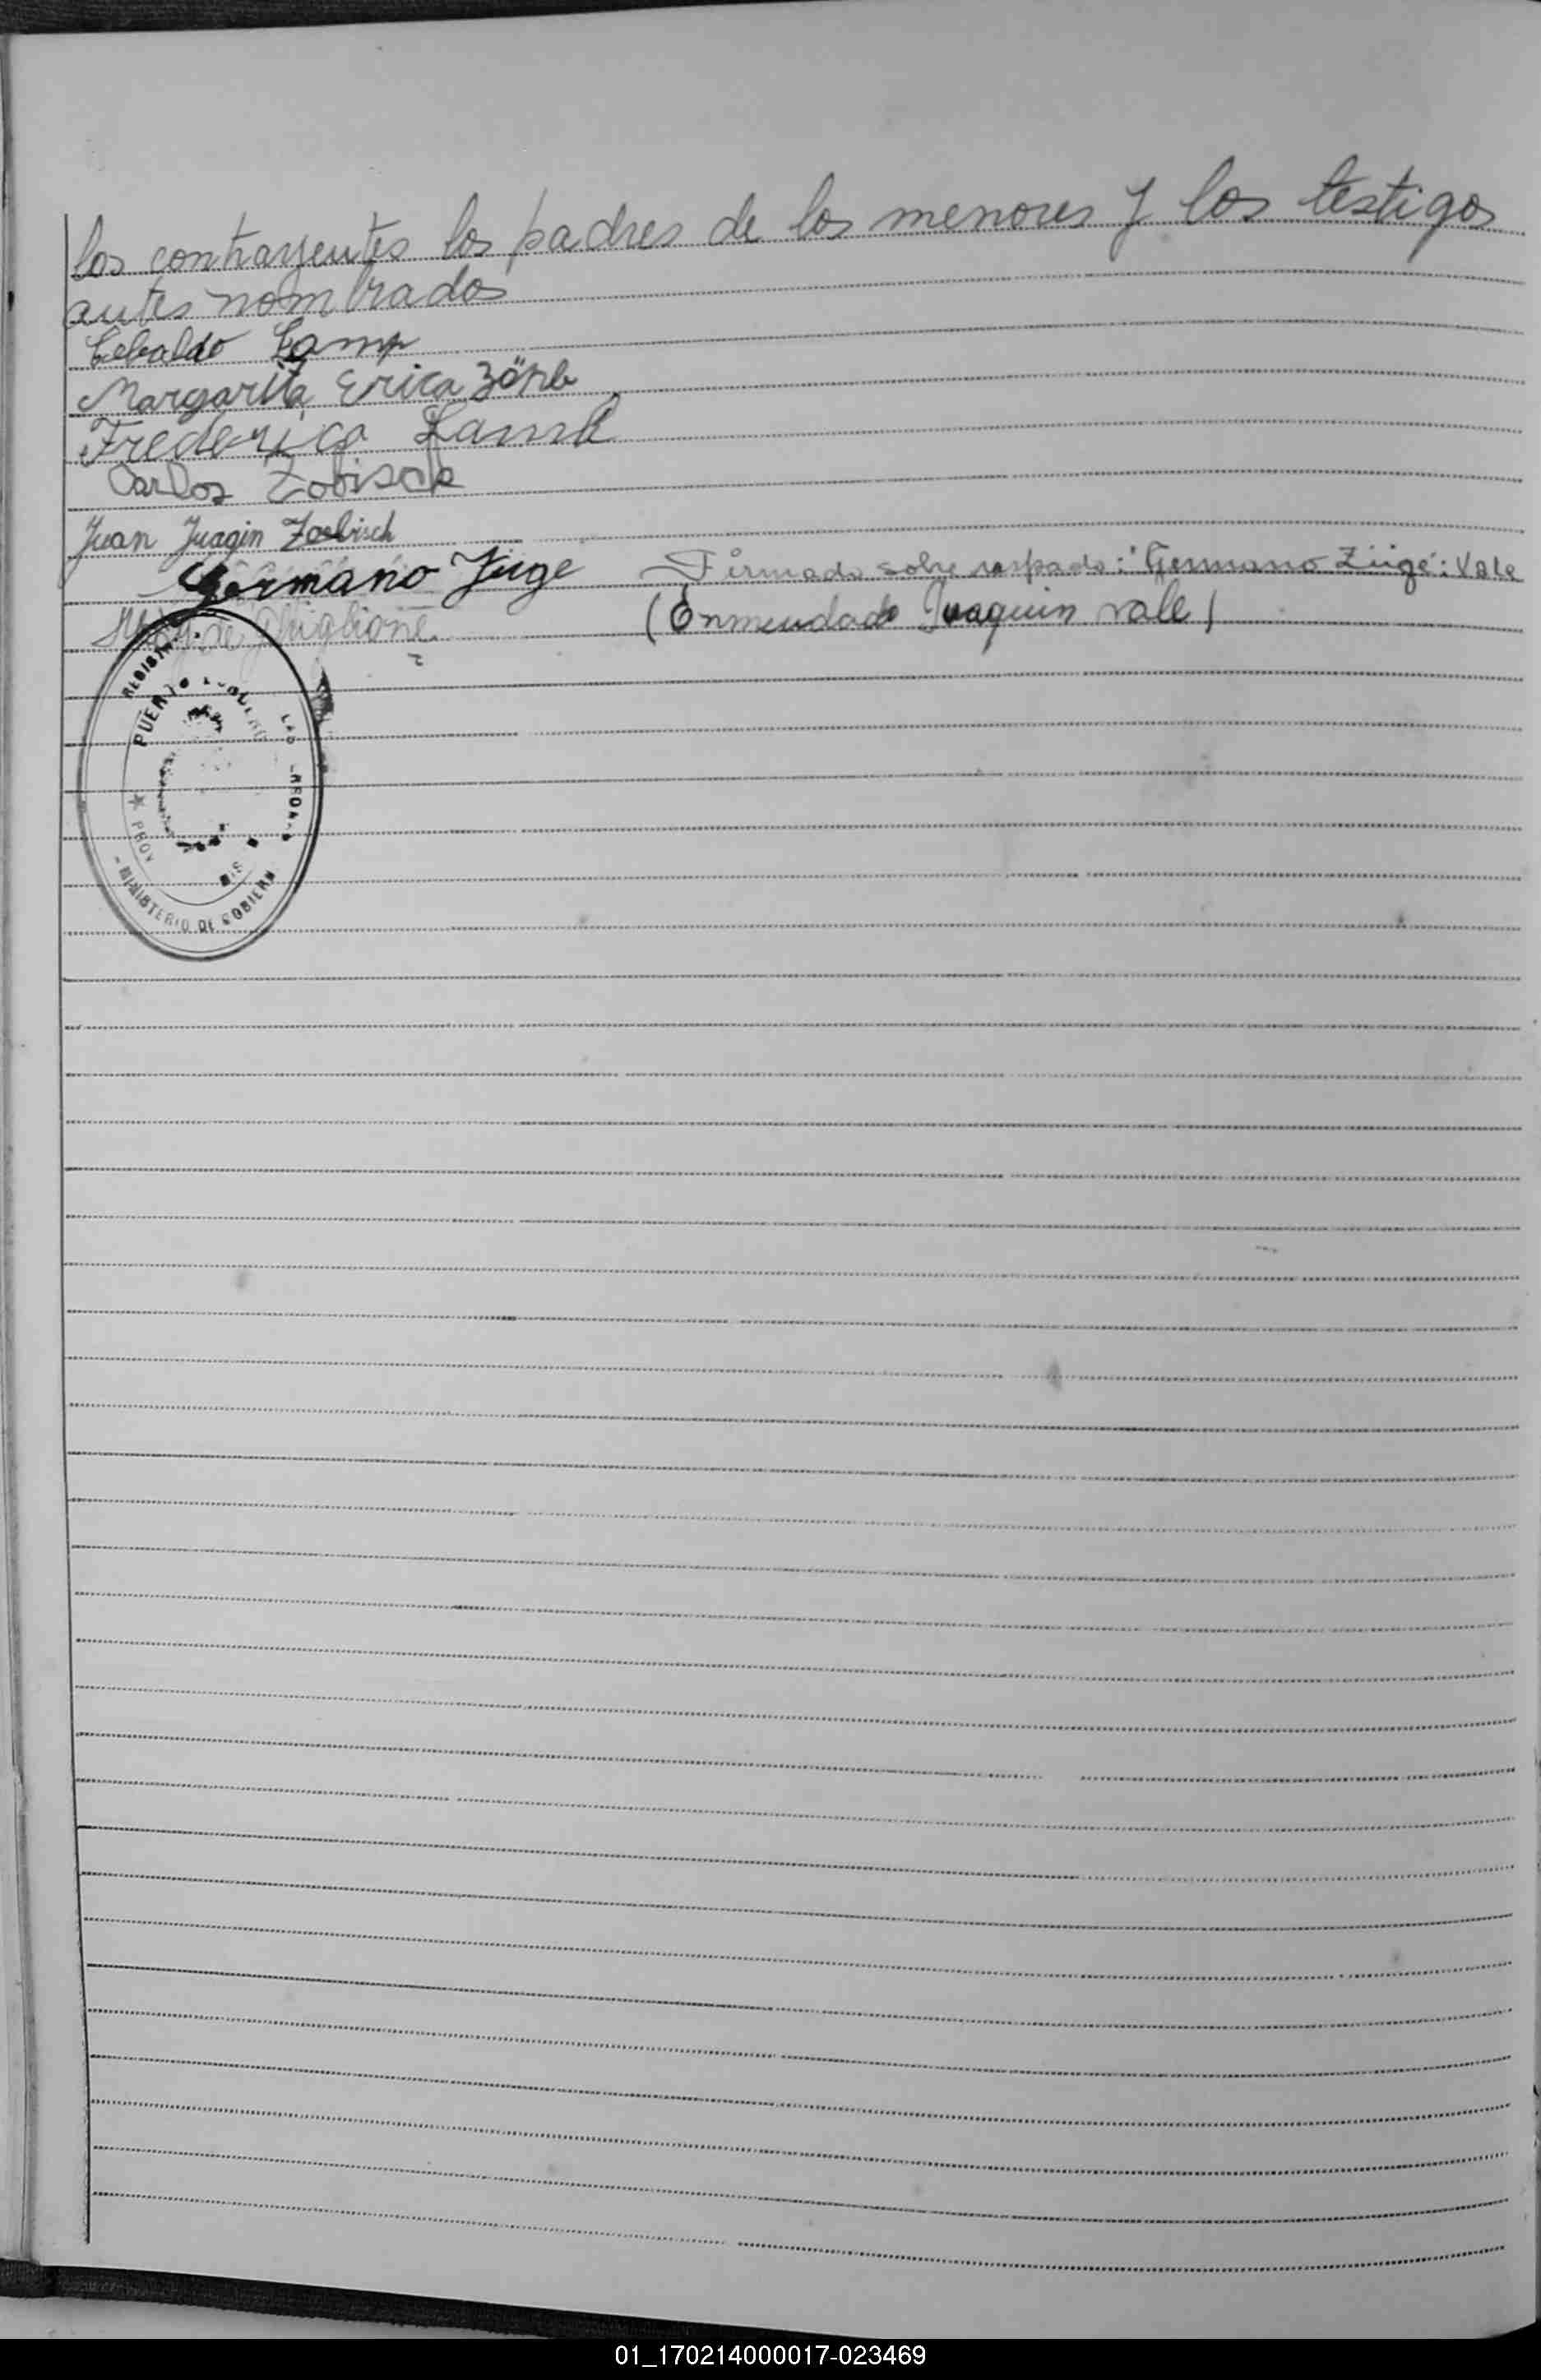 los contrayentes los padres de los menores y los testigos
antes nombrados
Tebaldo Lamp
Margarita Erica Zönb
Frederico Lamb
Carlos Zobisch
Juan Juagin Zoebisch
Germano Züge Firmado sobre raspado: "Germano Züge": Vale
de Ghiglione (Enmendado Joaquin vale)
PUERTO
PROV
MIS
MINISTERIO DE GOBIERN
01_170214000017-023469